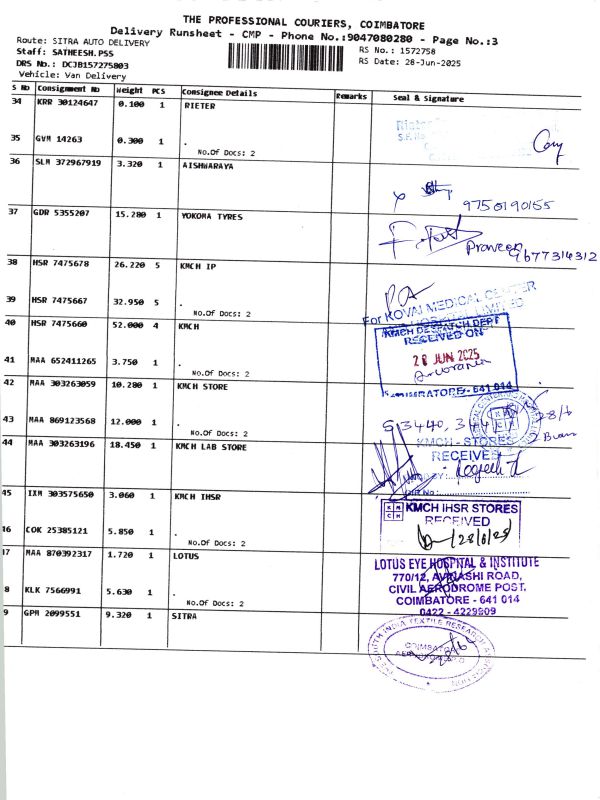 THE PROFESSIONAL COURIERS, COIMBATORE
Delivery Runsheet - CMP - Phone No.:9047080280 - Page No.:3
Route: SITRA AUTO DELIVERY
RS No.: 1572758
Staff: SATHEESH.PSS
RS Date: 28-Jun-2025
DRS No.: DCJB157275803
Vehicle: Van Delivery
S No Consignment No Weight PCS Consignee Details Remarks Seal & Signature
34 KRR 30124647 0.100 1 RIETER
35 GVM 14263 0.300 1 .
No.Of Docs: 2
36 SLM 372967919 3.320 1 AISHWARAYA
9750190155
37 GDR 5355207 15.280 1 YOKOMA TYRES
Praveen
9677314312
38 HSR 7475678 26.220 5 KMCH IP
39 HSR 7475667 32.950 5 .
No.Of Docs: 2
For KOVAI MEDICAL CENTER
40 HSR 7475660 52.000 4 KMCH
KMCH DESPATCH DEPT
RECEIVED ON
28 JUN 2025
41 MAA 652411265 3.750 1 .
No.Of Docs: 2
42 MAA 303263059 10.280 1 KMCH STORE
43 MAA 869123568 12.000 1 .
No.Of Docs: 2
28/6
44 MAA 303263196 18.450 1 KMCH LAB STORE
KMCH - STORES
RECEIVED
45 IXM 303575650 3.060 1 KMCH IHSR
KMCH IHSR STORES
RECEIVED
16 COK 25385121 5.850 1 .
No.Of Docs: 2
17 MAA 870392317 1.720 1 LOTUS
LOTUS EYE HOSPITAL & INSTITUTE
770/12, AVINASHI ROAD,
CIVIL AERODROME POST.
COIMBATORE - 641 014
0422 - 4229909
8 KLK 7566991 5.630 1 .
No.Of Docs: 2
9 GPM 2099551 9.320 1 SITRA
THE SOUTH INDIA TEXTILE RESEARCH ASSOCIATION